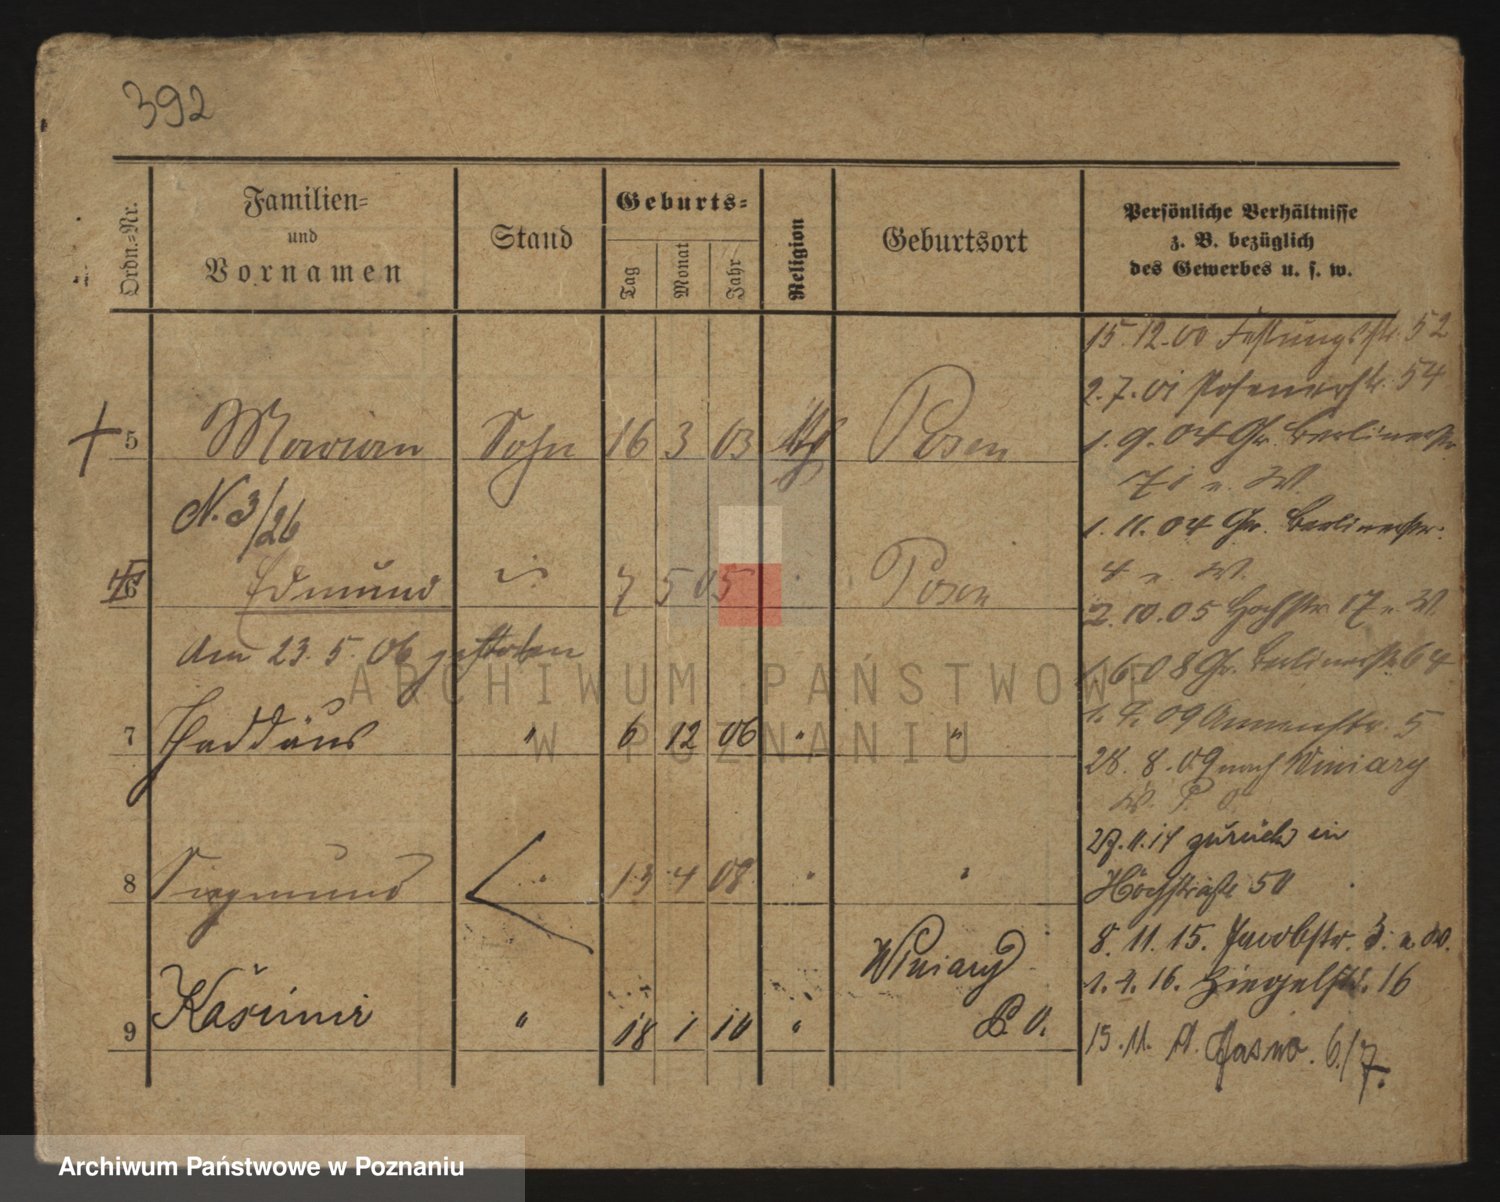 392
Ordn.-Nr.
Familien-
und
Vornamen
Stand
Geburts-
Tag
Monat
Jahr
Religion
Geburtsort
Persönliche Verhältnisse
z. B. bezüglich
des Gewerbes u. s. w.
5 Marian Sohn 16 3 03 kth Posen
N. 3/26
6 Edmund 7 5 05 Posen
Am 23. 5. 06 gestorben
7 Thaddäus " 6 12 06 " "
8 Siegmund " 13 4 08 " "
9 Kasimir " 18 1 10 " Winiary
P. O.
15. 12. 00 Festungsstr. 52
2. 7. 01 Posenerstr. 54
1. 9. 04 Gr. Berlinerstr.
71 u. W.
1. 11. 04 Gr. Berlinerstr.
4 u. W.
2. 10. 05 Hochstr. 17 u. W
1. 6. 08 Gr. Berlinerstr. 64
09 Annenstr. 5
28. 8. 09 nach Winiary
P. O.
27. 11. 14 zurück in
Hochstraße 50
8. 11. 15. Jacobstr. 3. u. W.
1. 4. 16. Ziegelstr. 16
15. 11. 6/7.
ARCHIWUM PAŃSTWOWE
W POZNANIU
Archiwum Państwowe w Poznaniu